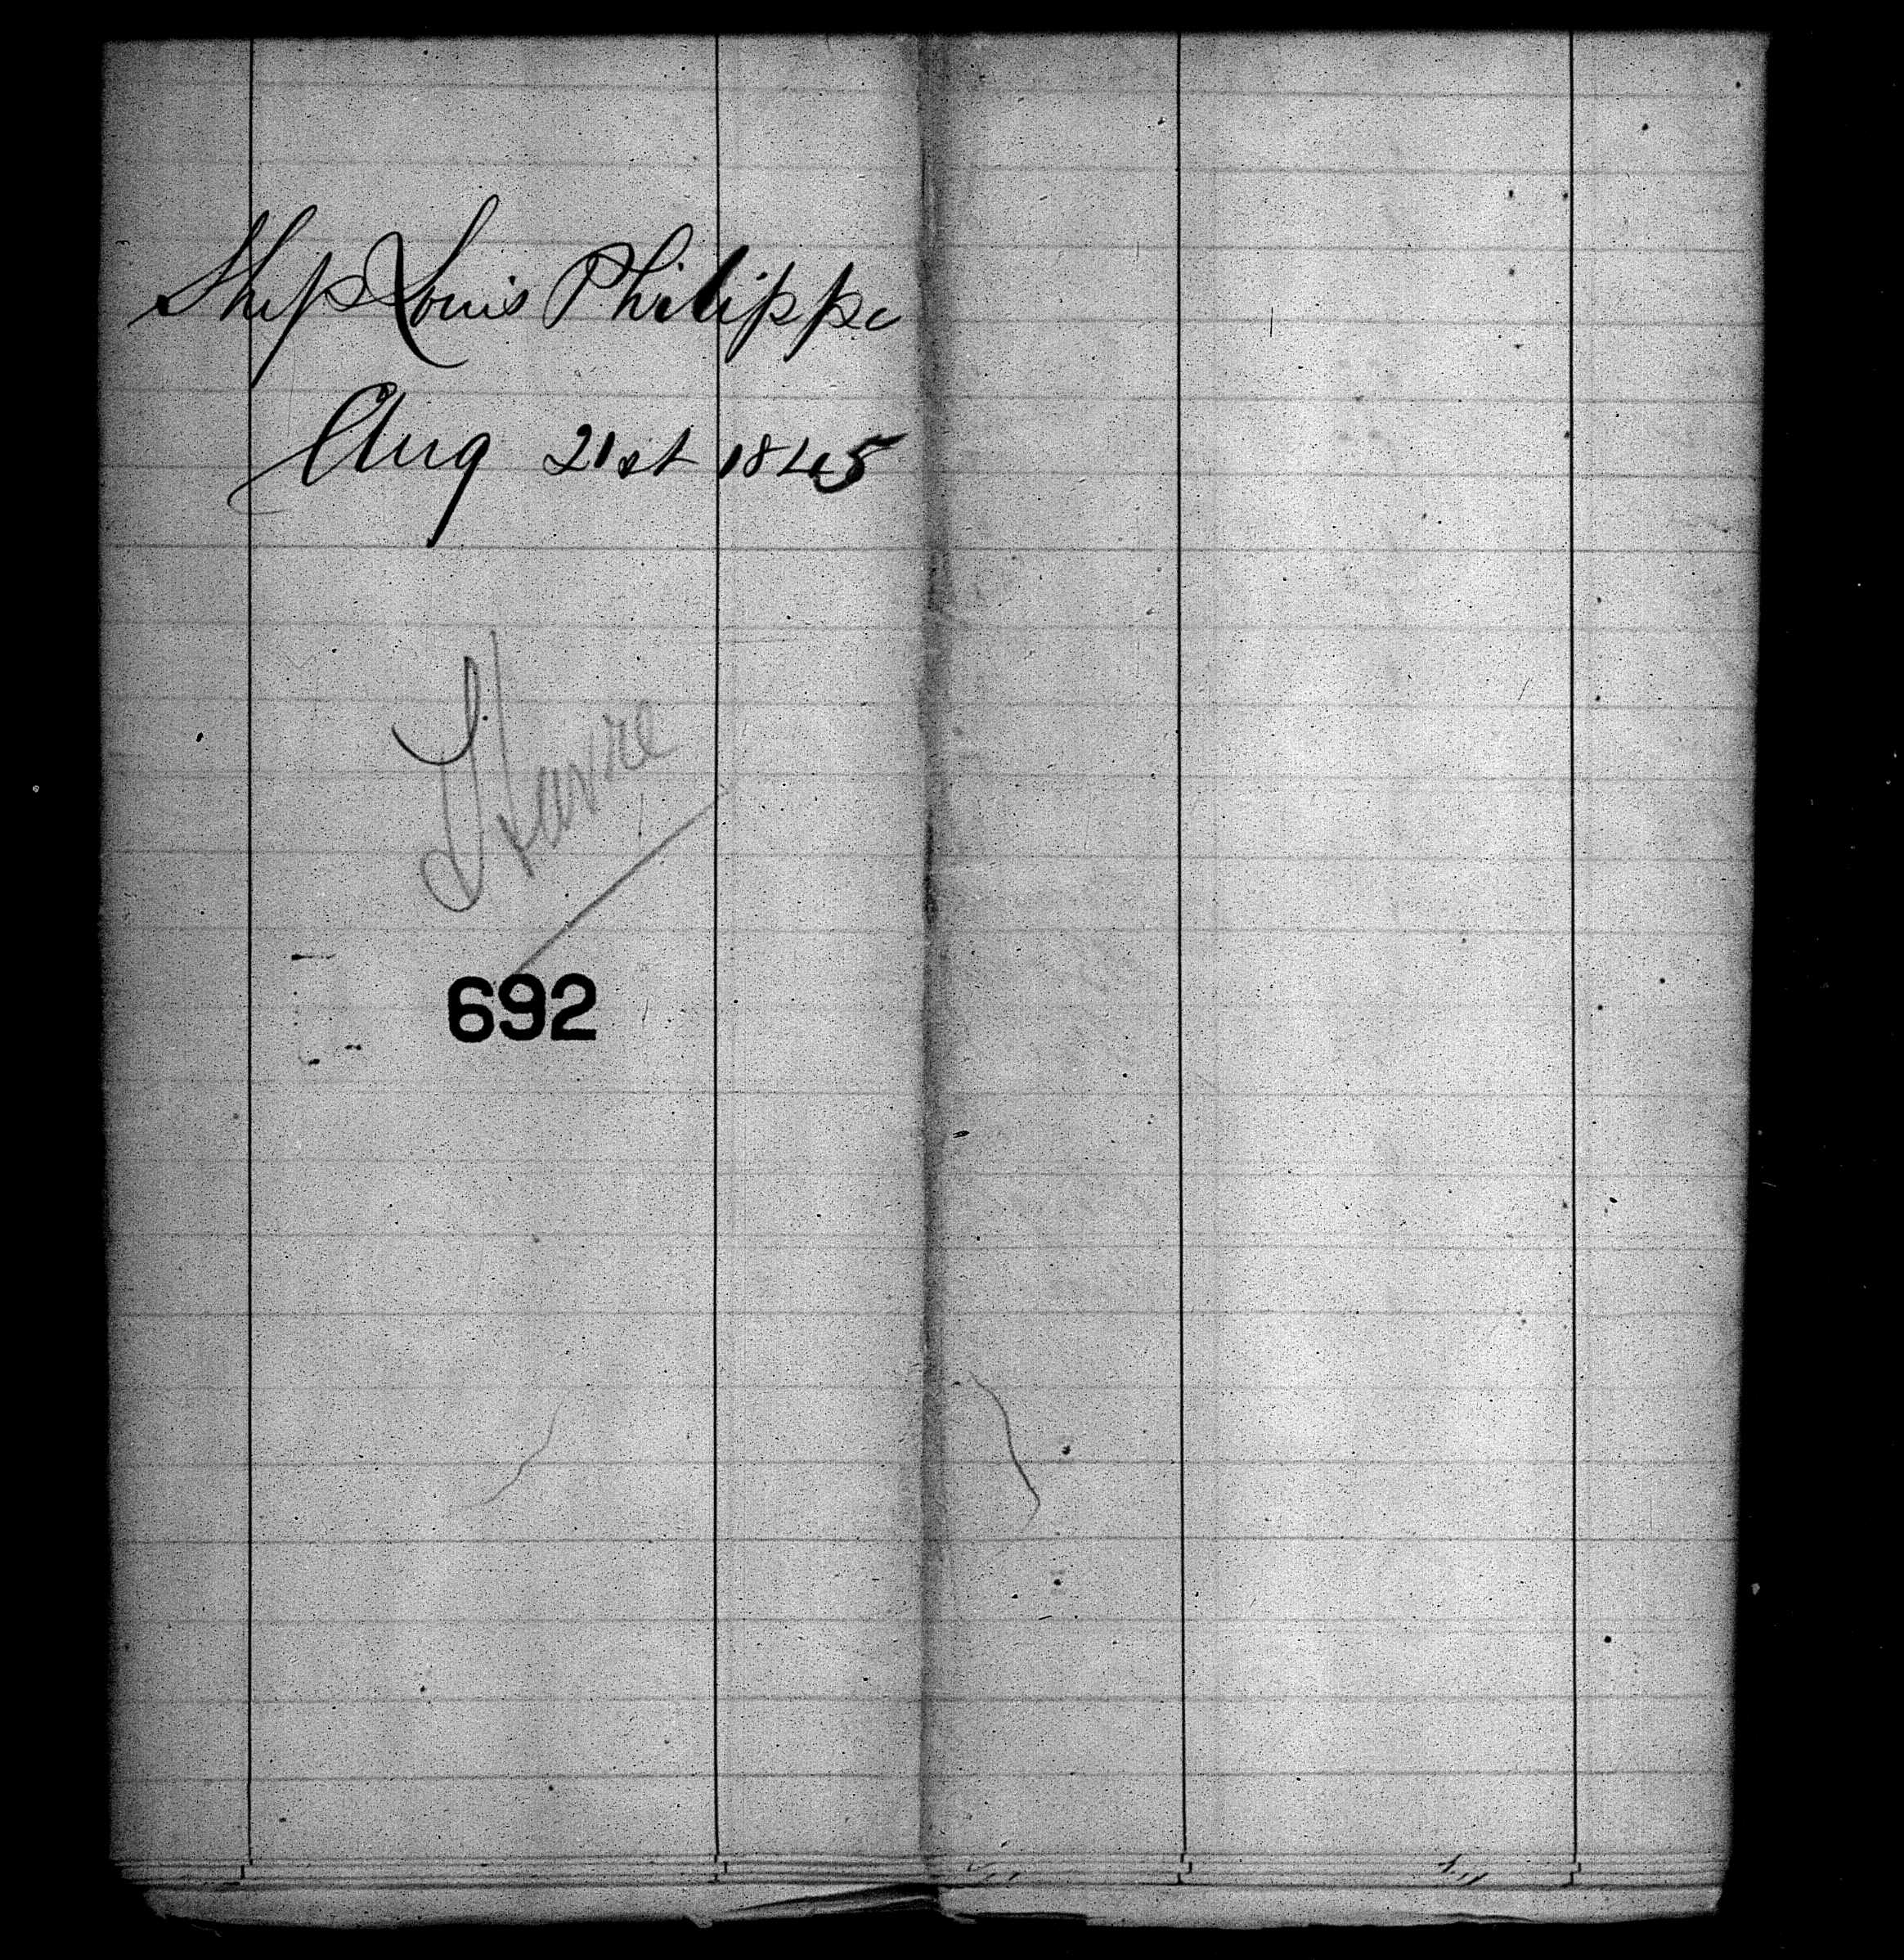 Ship Louis Philippe
Aug 21st 1845
Havre
692